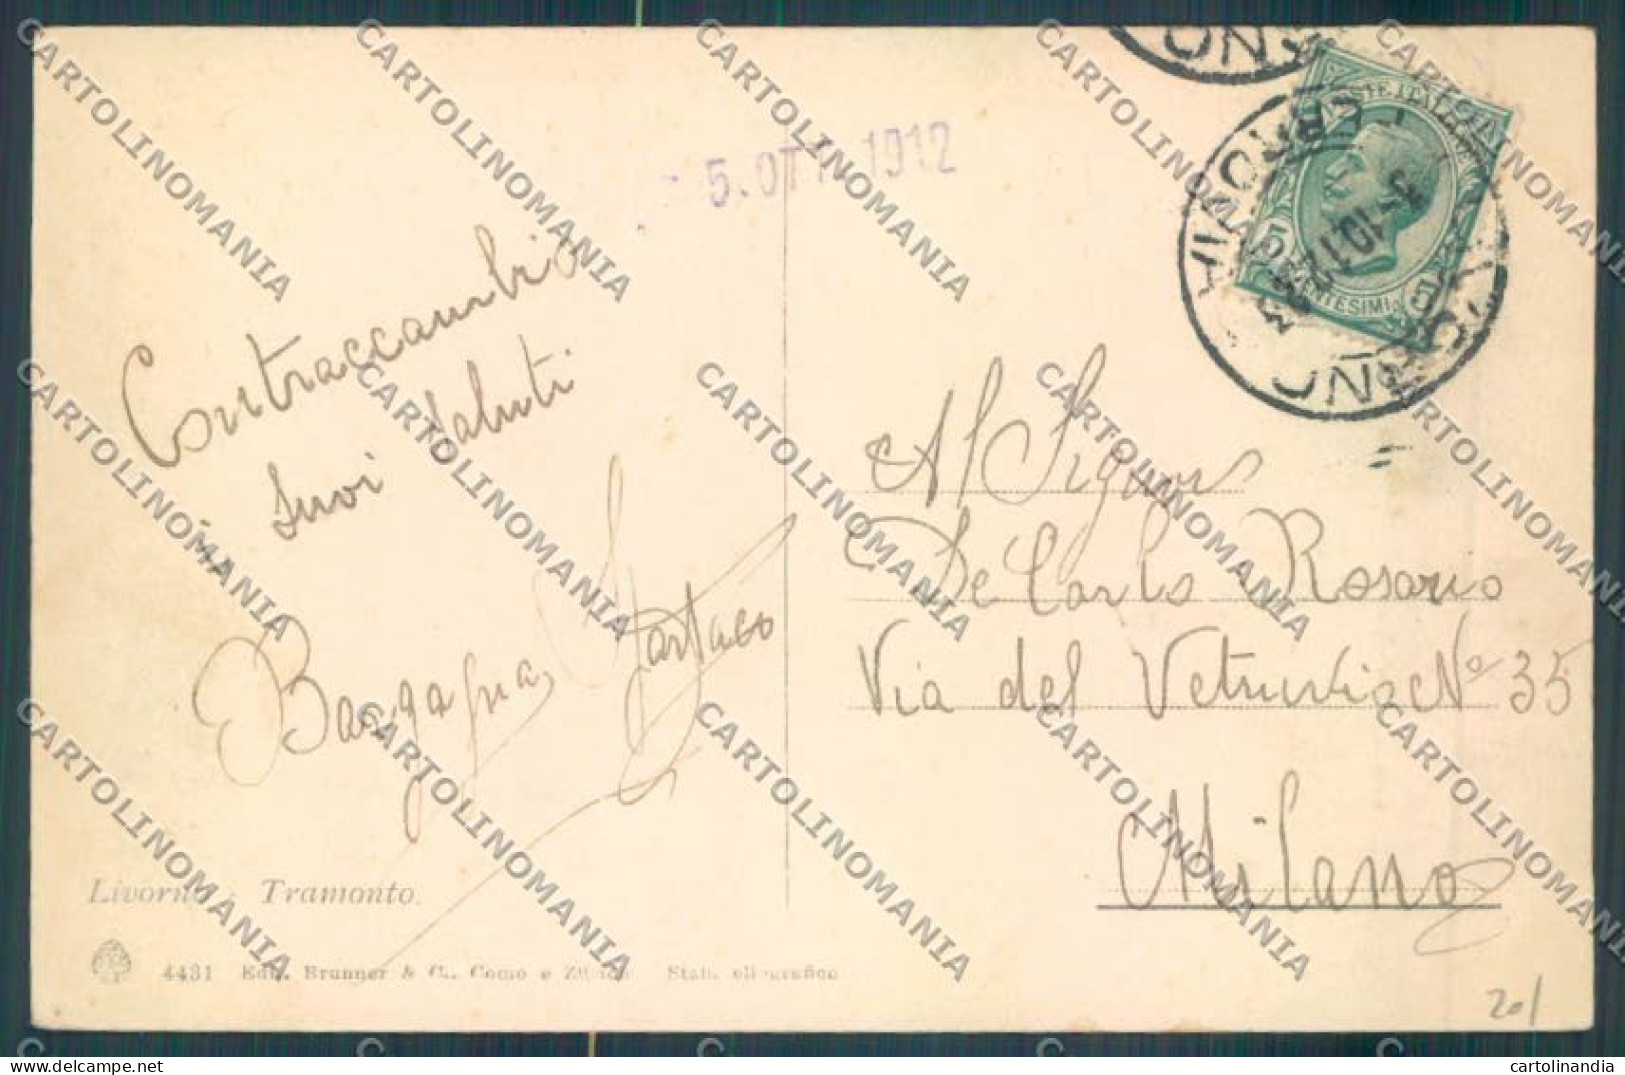 5. OTT. 1912
POSTE ITALIANE
CENTESIMI 5
LIVORNO
FERROVIA
Contraccambio
i suoi saluti
Al Signor
De Carlo Rosario
Via del Vetruvio No 35
Milano
Livorno - Tramonto.
4431 Edit. Brunner & C., Como e Zürich Stab. eliografico
201
CARTOLINOMANIA
cartolinandia